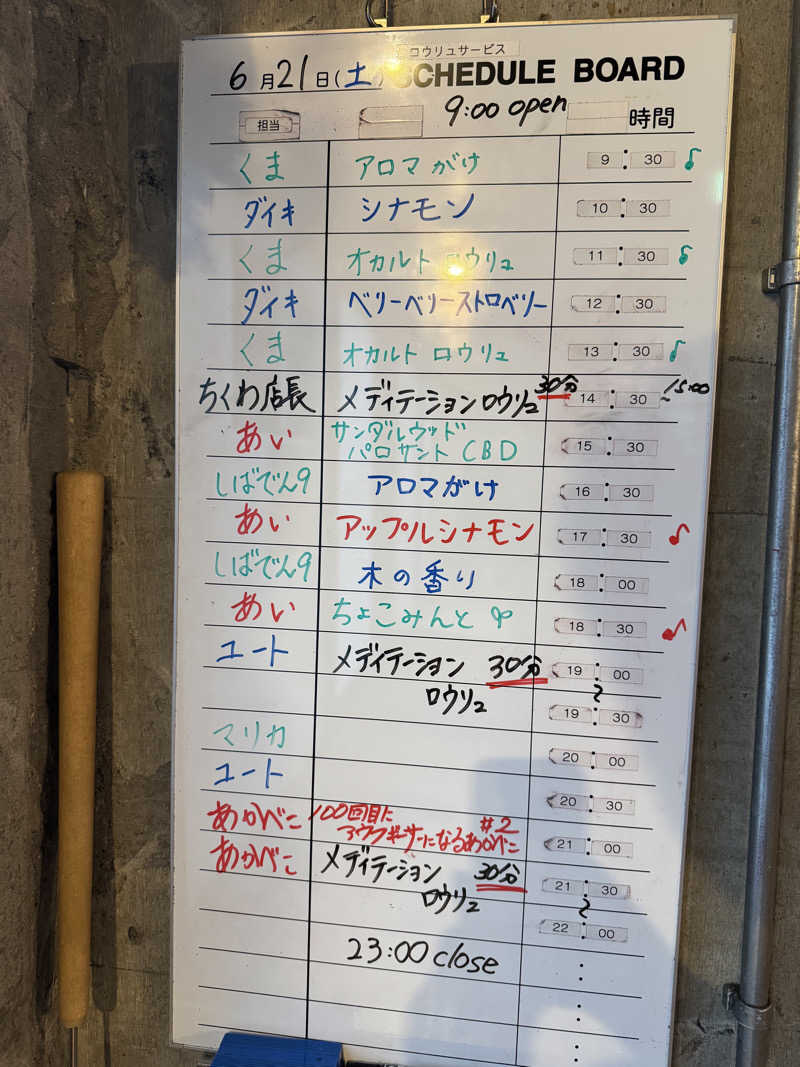 ロウリュサービス
6月21日(土) SCHEDULE BOARD
9:00 open
担当 時間
くま アロマがけ 9:30 ♪
ダイキ シナモン 10:30
くま オカルトロウリュ 11:30 ♪
ダイキ ベリーベリーストロベリー 12:30
くま オカルトロウリュ 13:30 ♪
ちくわ店長 メディテーションロウリュ 30分 14:30~15:00
あい サンダルウッド
パロサント CBD 15:30
しばでん9 アロマがけ 16:30
あい アップルシナモン 17:30 ♪
しばでん9 木の香り 18:00
あい ちょこみんと 18:30 ♪
ユート メディテーション 30分 19:00
ロウリュ ~ 19:30
マリカ 20:00
ユート 20:30
あかべこ 100回目に #2
アウフギーサーになるあかべこ 21:00
あかべこ メディテーション 30分 21:30
ロウリュ ~ 22:00
23:00 close